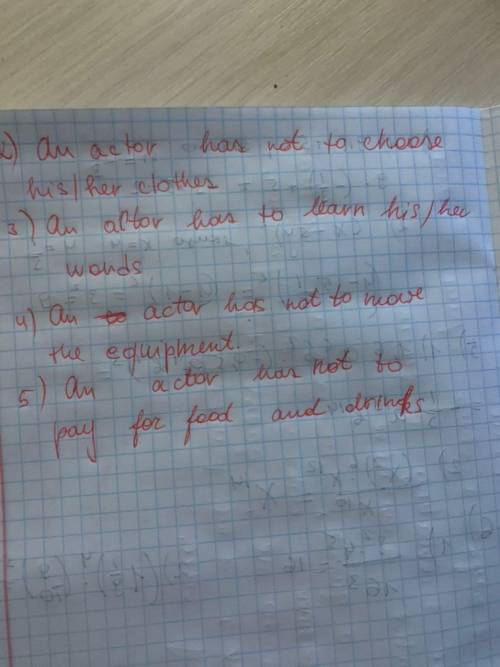 2) An actor has not to choose
his/her clothes
3) An actor has to learn his/her
words
4) An actor has not to move
the equipment.
5) An actor has not to
pay for food and drinks